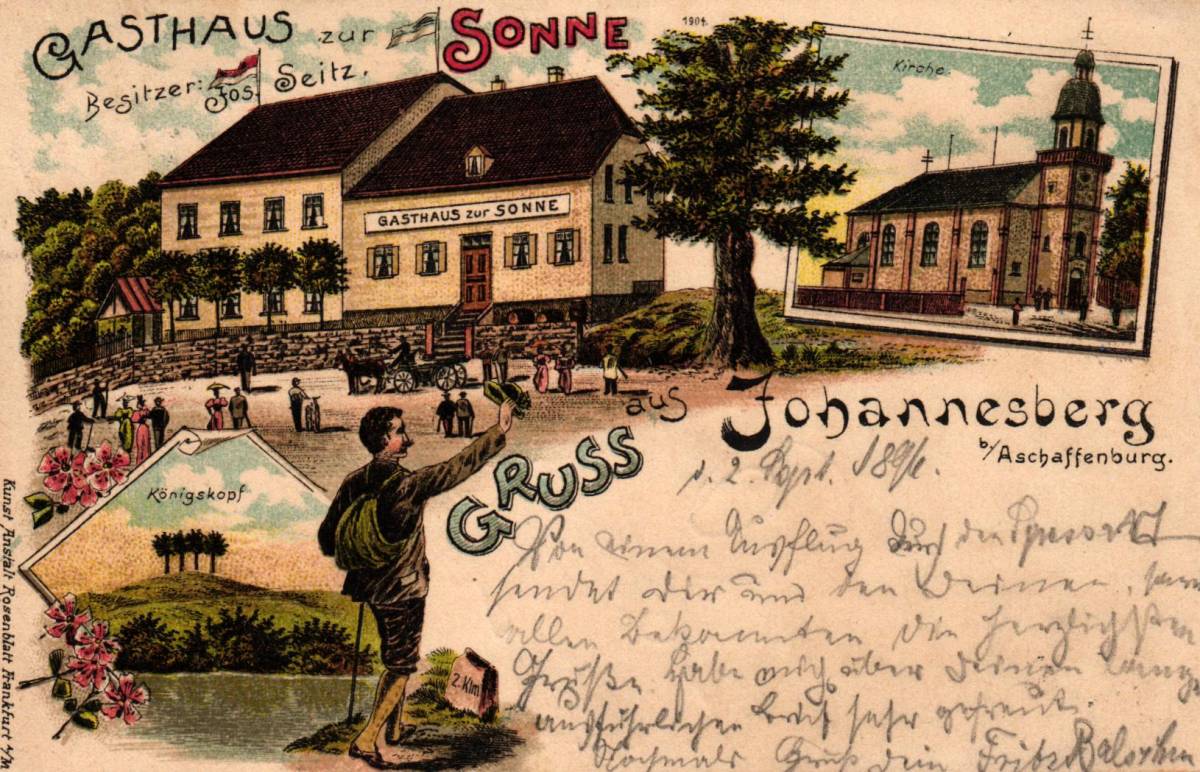 GASTHAUS zur SONNE
Besitzer: Jos. Seitz.
1904.
Kirche.
GASTHAUS zur SONNE
GRUSS aus Johannesberg
b/Aschaffenburg.
Königskopf
2. Klm
Kunst Anstalt Rosenblatt Frankfurt a/M
d. 2. Sept. 189
Von einem Ausflug durch den Spessart
sendet Dir und den Deinen,
allen Bekannten die herzlichsten
Grüße. Habe mich über Deinen
ausführlichen Brief sehr gefreut.
Nochmals Gruß Dein Fritz